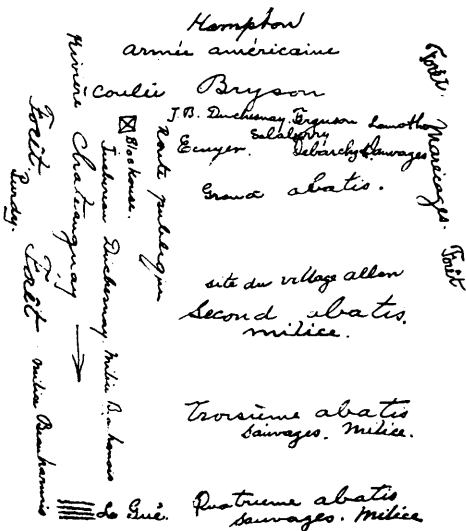 Hampton
armée américaine
Coulée Bryson
J. B. Duchesnay. Ferguson Lamothe
Salaberry
Ecuyer. Debarchy & Sauvages
Grand abatis.
site du village allan
Second abatis.
milice.
Troisième abatis
sauvages. Milice.
Quatrieme abatis
sauvages. Milice
Le Gué.
Rivière Chateauguay
Forêt. Forêt. milice Beauharnois
Purdy.
Blockouse.
Juchereau Duchesnay. Milice Beauharnois
Route publique
Forêt. Marécages. Forêt